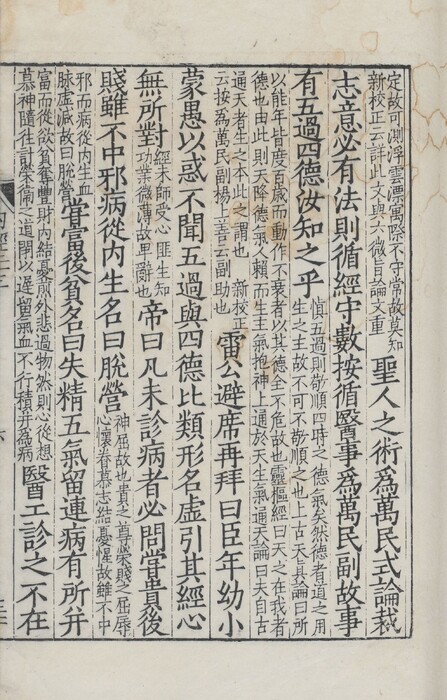 定故可測浮雲漂寓際不守常故莫知
新校正云詳此文與六微旨論文重
聖人之術為萬民式論裁
志意必有法則循經守數按循醫事為萬民副故事
有五過四德汝知之乎
慎五過則敬順四時之德氣矣然德者道之用
生之主故不可不敬順之也上古天真論曰所
以能年皆度百歲而動作不衰者以其德全不危故也靈樞經曰天之在我者
德也由此則天降德氣人賴而生主氣抱神上通於天生氣通天論曰夫自古
通天者生之本此之謂也 新校正
云按為萬民副楊上善云副助也
雷公避席再拜曰臣年幼小
蒙愚以惑不聞五過與四德比類形名虛引其經心
無所對
經未師受心匪生知
功業微薄故卑辭也
帝曰凡未診病者必問嘗貴後
賤雖不中邪病從內生名曰脫營
神屈故也貴之尊榮賤之屈辱
心懷眷慕志結憂惶故雖不中
邪而病從內生血
脉虛減故曰脫營
嘗富後貧名曰失精五氣留連病有所并
富而從欲貧奪豐財內結憂煎外悲過物然則心從想
慕神隨往計榮衛之道閉以遲留氣血不行積并為病
醫工診之不在